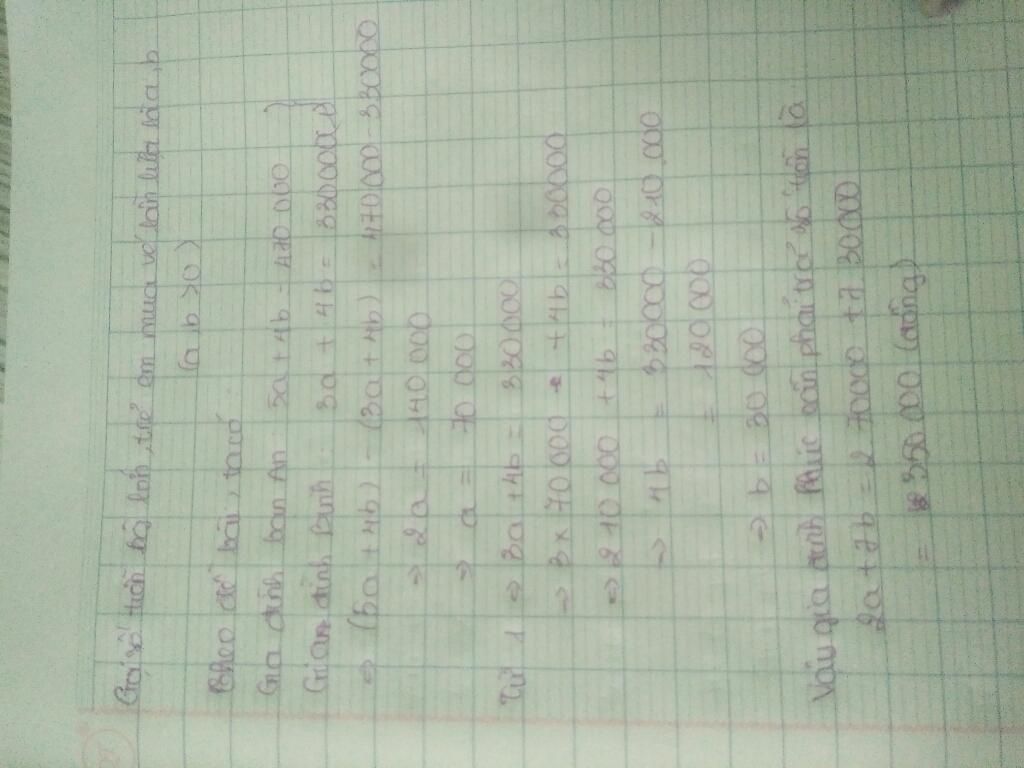 Gọi số tiền bộ lớn, trẻ em mua vé lần lượt là a, b
(a, b > 0)
Theo đề bài, ta có
Gia đình bạn An: 5a + 4b = 470 000 }
Gia đình Bình: 3a + 4b = 330 000 (1)
=> (5a + 4b) - (3a + 4b) = 470 000 - 330000
=> 2a = 140 000
=> a = 70 000
Từ 1 => 3a + 4b = 330 000
=> 3 x 70 000 + 4b = 330000
=> 210 000 + 4b = 330 000
=> 4b = 330000 - 210.000
= 120 000
=> b = 30 000
Vậy gia đình Phúc cần phải trả số tiền là
2a + 7b = 2 70000 + 7 30000
= 350 000 (đồng)